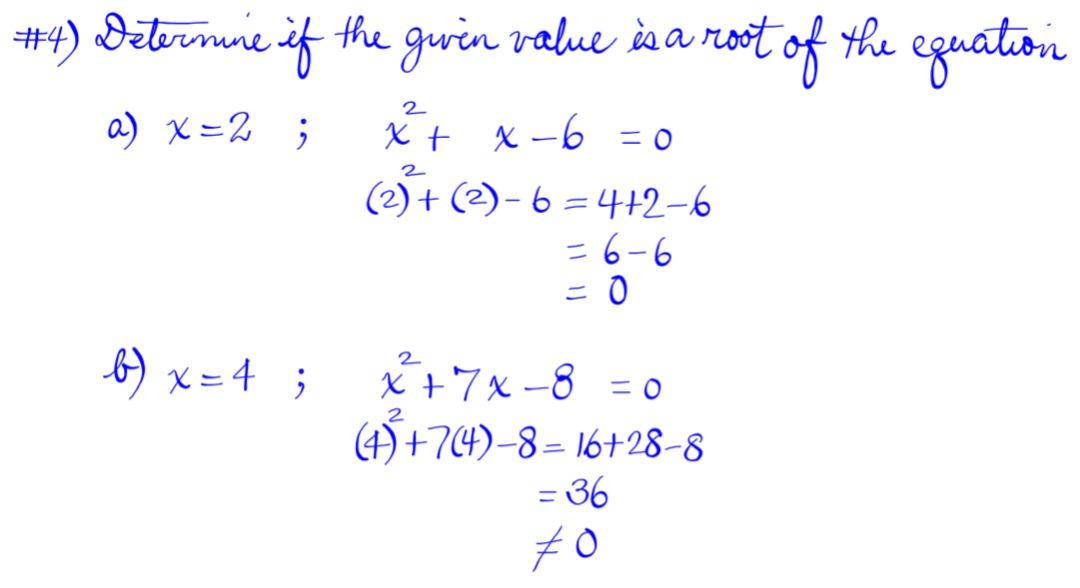 #4) Determine if the given value is a root of the equation
a) x = 2 ; x² + x - 6 = 0
(2)² + (2) - 6 = 4+2-6
= 6-6
= 0
b) x = 4 ; x² + 7x - 8 = 0
(4)² + 7(4) - 8 = 16+28-8
= 36
≠ 0